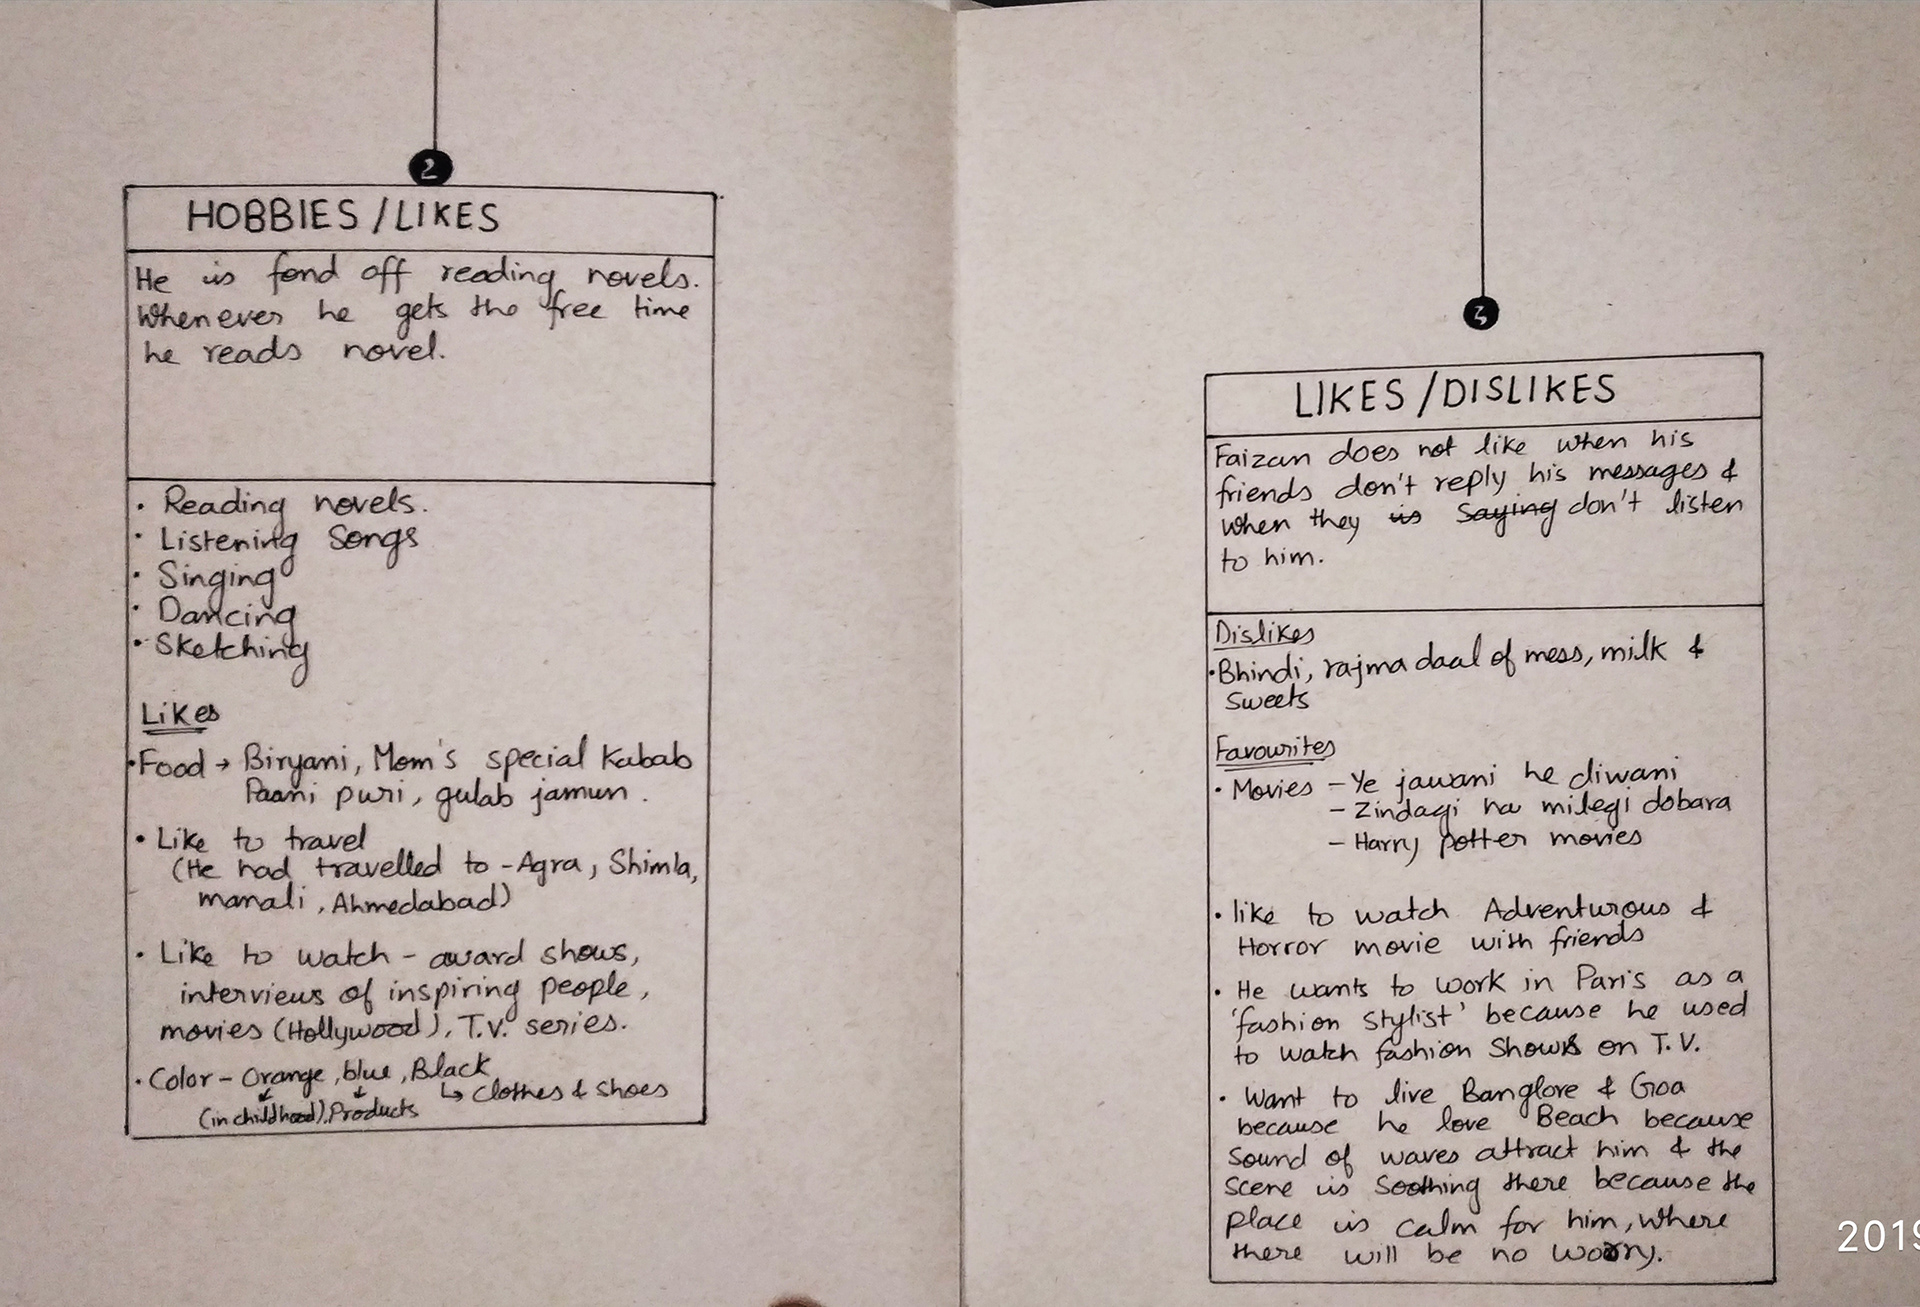 2
HOBBIES / LIKES
He is fond off reading novels.
Whenever he gets the free time
he reads novel.
• Reading novels.
• Listening Songs
• Singing
• Dancing
• Sketching
Likes
• Food → Biryani, Mom's special Kabab
Paani puri, gulab jamun.
• Like to travel
(He had travelled to - Agra, Shimla,
manali, Ahmedabad)
• Like to watch - award shows,
interviews of inspiring people,
movies (Hollywood), T.V. series.
• Color - Orange, blue, Black
↳ Clothes & Shoes
(in childhood), Products
3
LIKES / DISLIKES
Faizan does not like when his
friends don't reply his messages &
when they is Saying don't listen
to him.
Dislikes
• Bhindi, rajma daal of mess, milk &
sweets
Favourites
• Movies - Ye jawani he diwani
- Zindagi na milegi dobara
- Harry potter movies
• like to watch Adventurous &
Horror movie with friends
• He wants to work in Paris as a
'fashion stylist' because he used
to watch fashion Shows on T.V.
• Want to live Banglore & Goa
because he love Beach because
sound of waves attract him & the
scene is Soothing there because the
place is calm for him, where
there will be no worry.
2019